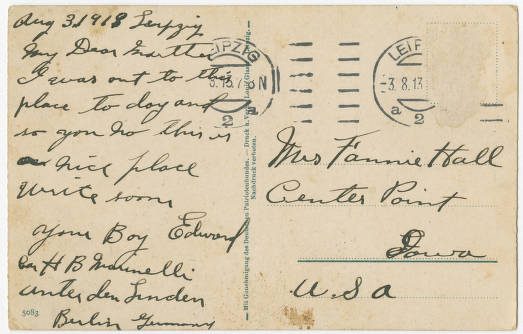 Aug 3. 1913 Leipzig
My Dear Mother
I was out to this
place to day and
so you no this is
a nice place
Write soon
your Boy Edward
car H B
unter den Linden
Berlin Germany
5083
Mit Genehmigung des Deutschen Patriotenbundes. – Druck
Nachdruck verboten.
LEIPZIG
3.8.13.7-8N
a
2
LEIP
-3.8.13
a
2
Mrs Fannie Hall
Center Point
Iowa
U.S.A